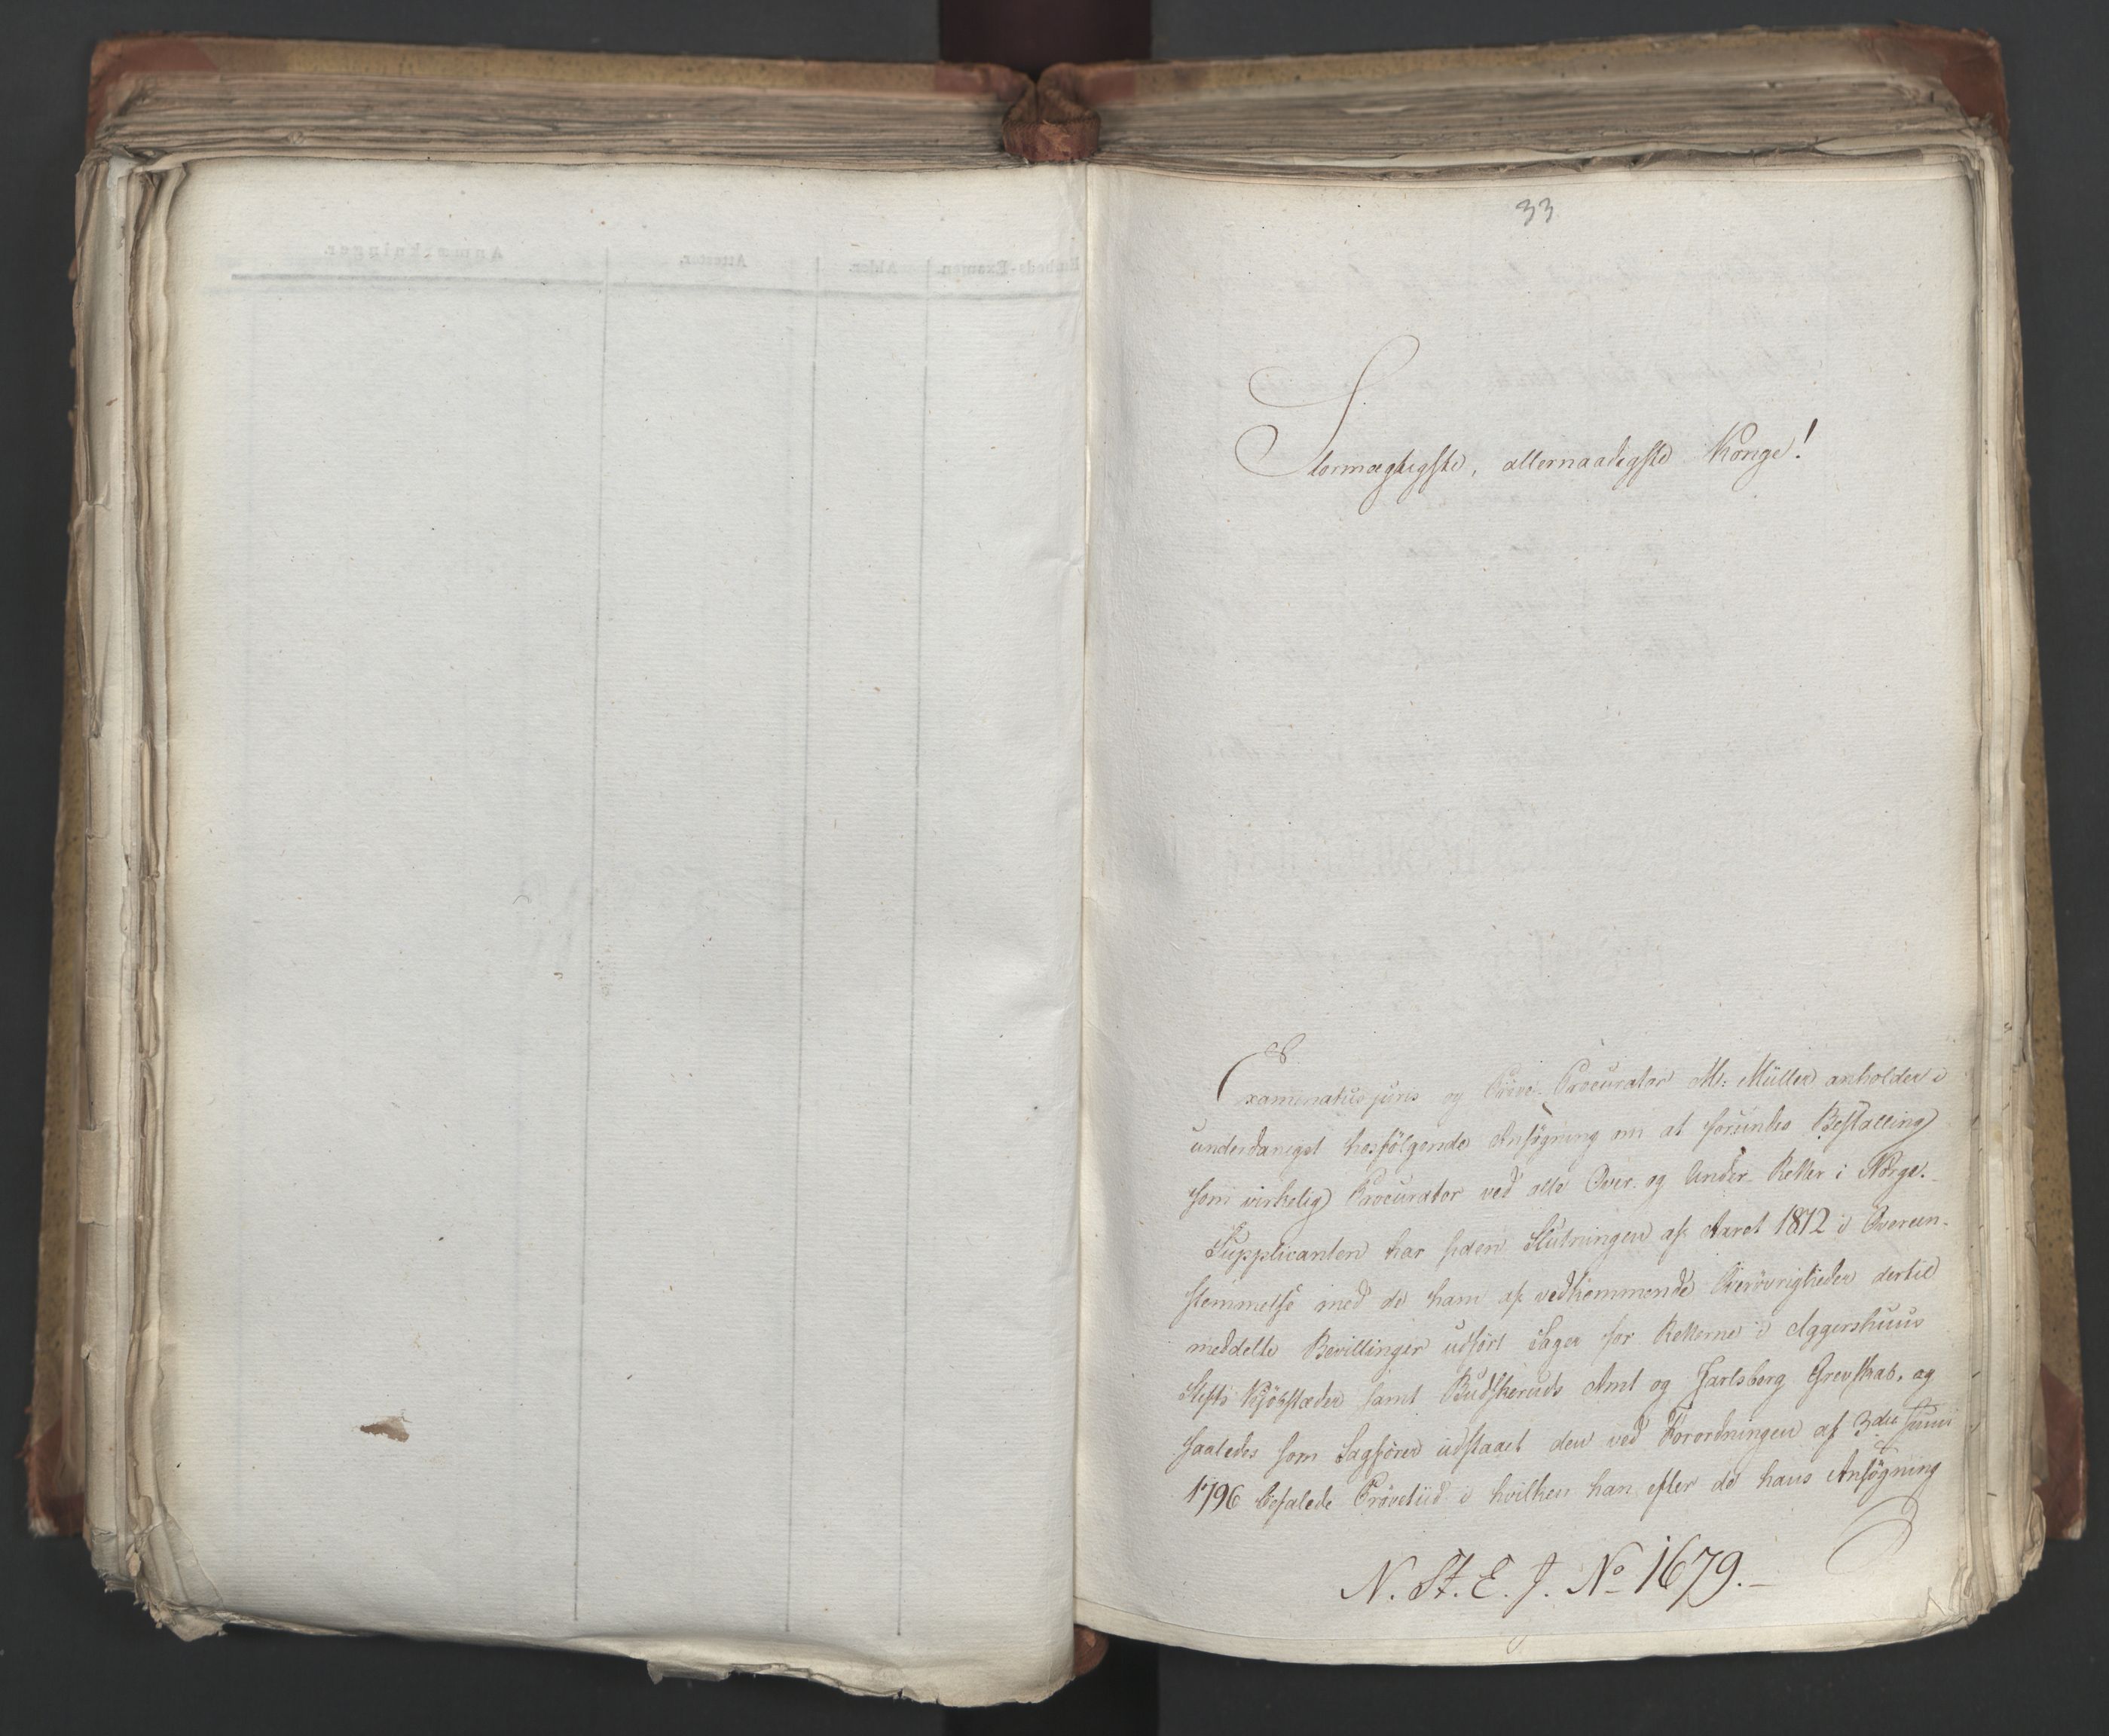 33
Stormægtigste, allernaadigste Konge!
Examinatus juris og Prøve-Procurator M: Müller anholder i
underdanigst hosfölgende Ansögning om at forundes Bestalling
som virkelig Procurator ved alle Over- og Under-Retter i Norge.
Supplicanten har siden Slutningen af Aaret 1812 i Overeen-
stemmelse med de ham af vedkommende Överövrigheder dertil
meddelte Bevillinger udfört Sager for Retterne i Aggershuus
Stifts Kjöbstæder samt Budskeruds Amt og Jarlsberg Grevskab, og
saaledes som Sagförer udstaaet den ved Forordningen af 3die Junii
1796 befalede Prövetiid i hvilken han efter de hans Ansögning
N. St. E. J. No 1679.-